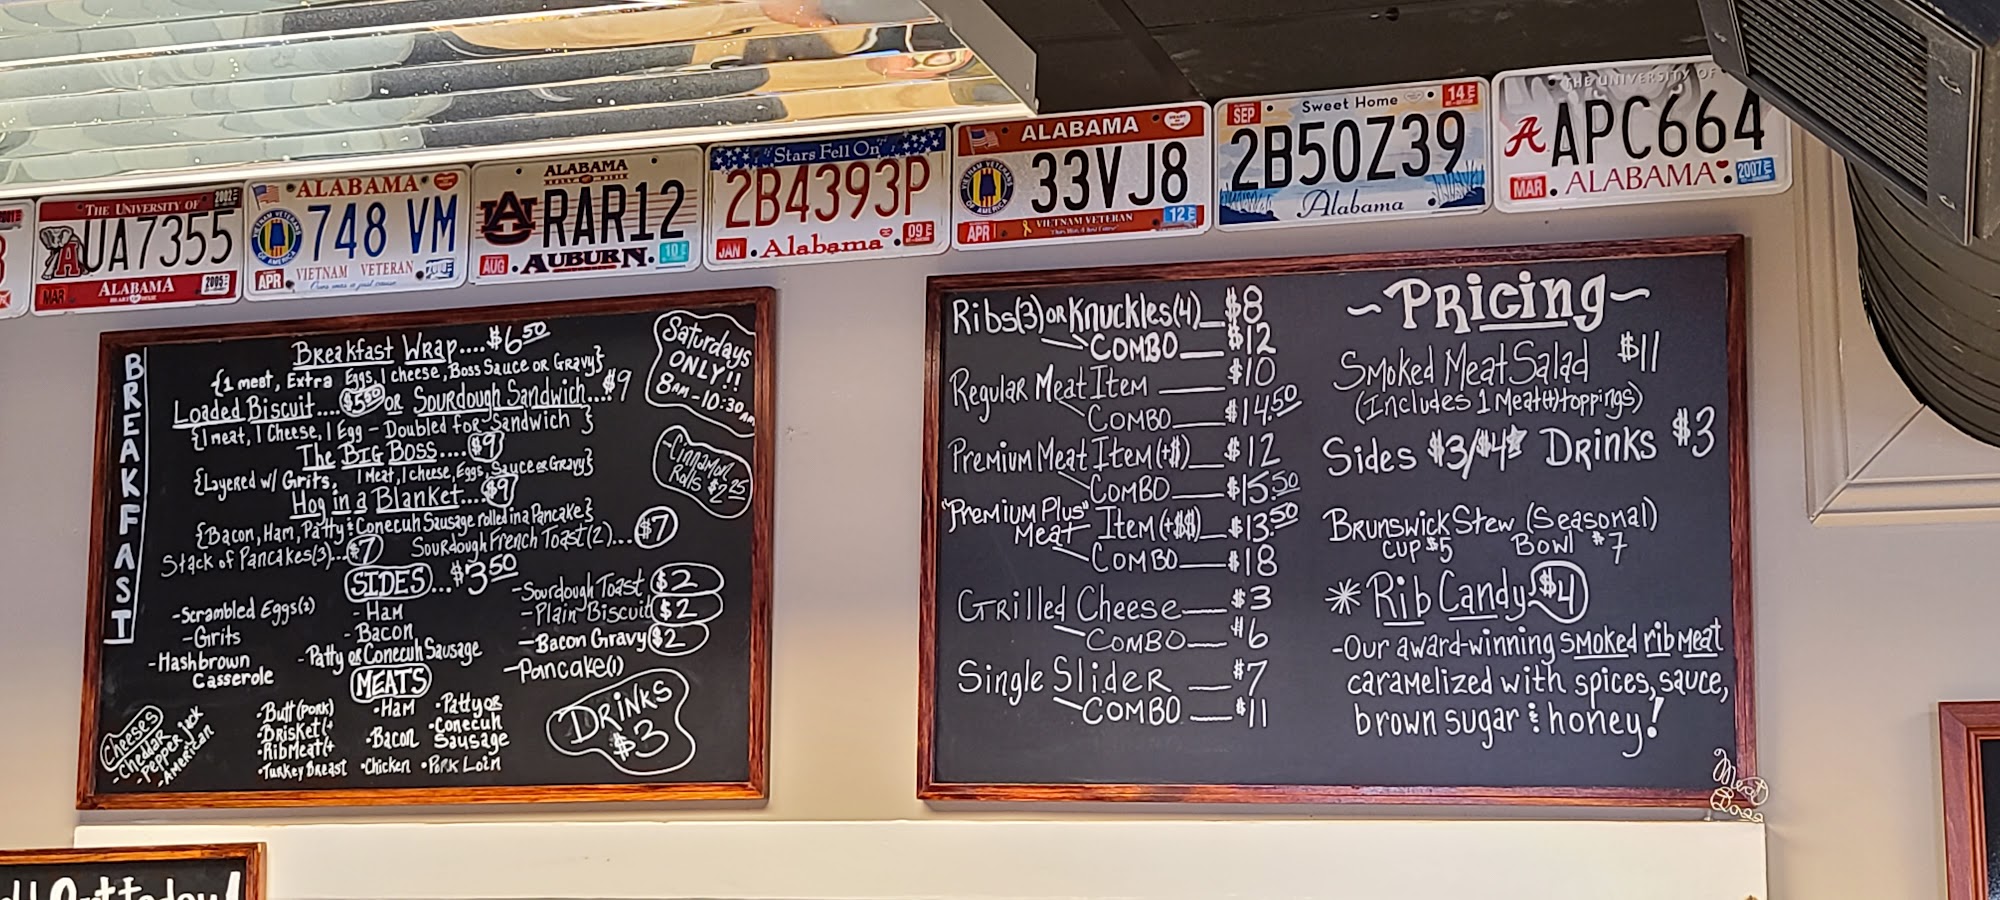 THE UNIVERSITY OF 2002
UA7355
MAR ALABAMA 2005
ALABAMA
VIETNAM VETERANS OF AMERICA
748 VM
APR VIETNAM VETERAN
ALABAMA
AU RAR12
AUG AUBURN 10
Stars Fell On
2B4393P
JAN Alabama 09
ALABAMA
VIETNAM VETERANS OF AMERICA
33VJ8
APR VIETNAM VETERAN 12
SEP Sweet Home 14
2B50Z39
Alabama
THE UNIVERSITY OF
A APC664
MAR ALABAMA 2007
BREAKFAST
Breakfast Wrap....$6.50
{1 meat, Extra Eggs, 1 cheese, Boss Sauce or Gravy}
Loaded Biscuit....$5.50 OR Sourdough Sandwich....$9
{1 meat, 1 Cheese, 1 Egg - Doubled for Sandwich}
The BIG BOSS....$9
{Layered w/ Grits, 1 Meat, 1 cheese, Eggs, Sauce or Gravy}
Hog in a Blanket...$9
{Bacon, Ham, Patty & Conecuh Sausage rolled in a Pancake}
Stack of Pancakes(3)...$7 Sourdough French Toast(2)...$7
Saturdays
ONLY!!
8AM-10:30AM
-Cinnamon
Rolls $2.25
SIDES...$3.50
-Scrambled Eggs(2)
-Grits
-Hashbrown
Casserole
-Ham
-Bacon
-Patty or Conecuh Sausage
-Sourdough Toast $2
-Plain Biscuit $2
-Bacon Gravy $2
-Pancake(1)
MEATS
Cheeses
-Cheddar
-Pepper jack
-American
·Butt(PORK)
·Brisket(+
·RibMeat(+
·Turkey Breast
·Ham
·Bacon
·Chicken
·Patty or
·Conecuh
Sausage
·Pork Loin
DRINKS
$3
~Pricing~
Ribs(3) OR Knuckles(4) $8
COMBO $12
Regular Meat Item $10
COMBO $14.50
Premium Meat Item(+$) $12
COMBO $15.50
"Premium Plus"
Meat Item(+$$) $13.50
COMBO $18
Grilled Cheese $3
COMBO $6
Single Slider $7
COMBO $11
Smoked Meat Salad $11
(Includes 1 Meat(+)toppings)
Sides $3/$4* Drinks $3
Brunswick Stew (Seasonal)
Cup $5 Bowl $7
*Rib Candy $4
-Our award-winning smoked rib meat
caramelized with spices, sauce,
brown sugar & honey!
Meat
Boss
Out Today!